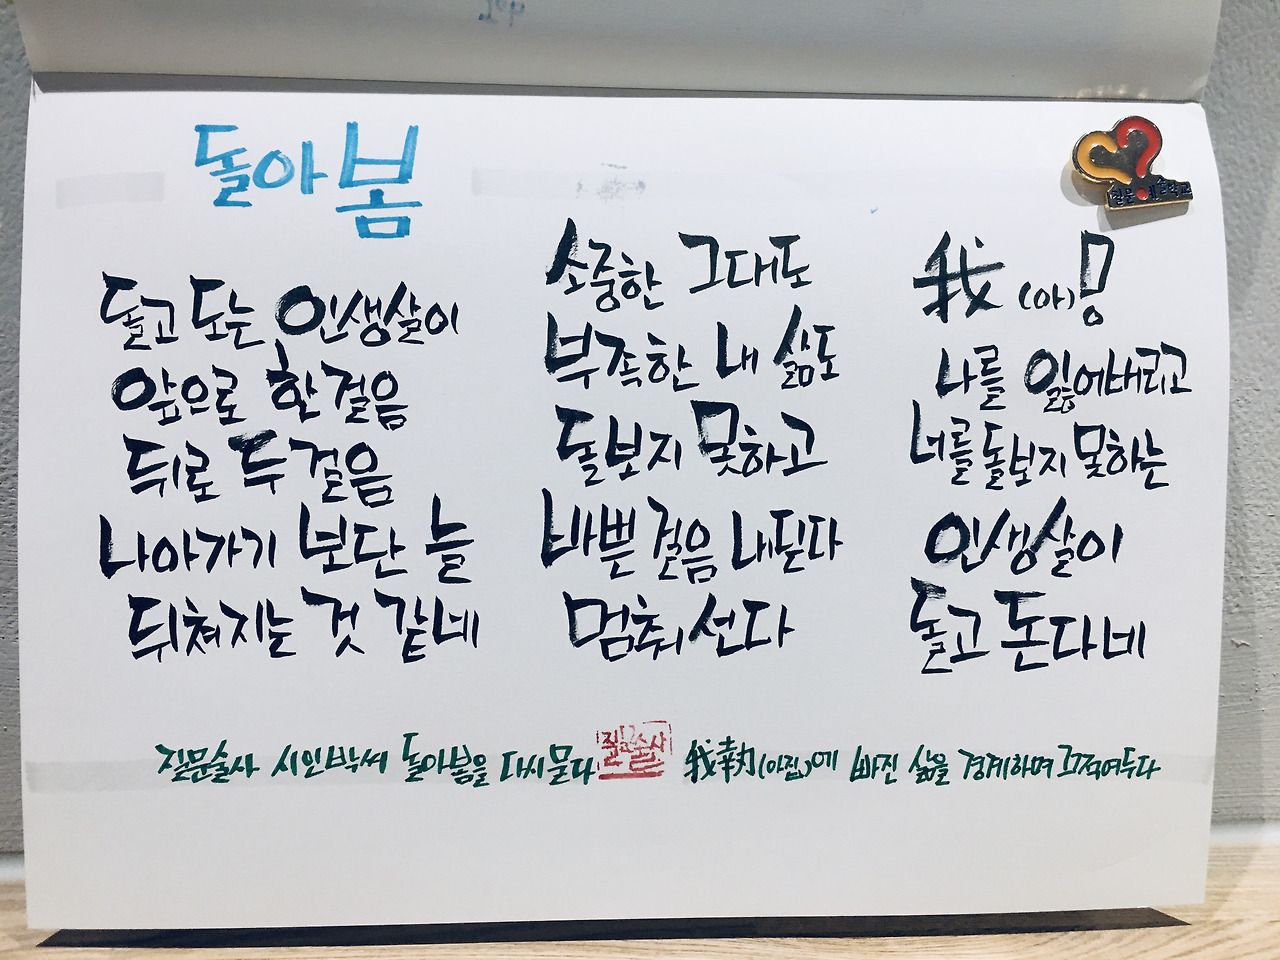 돌아봄
돌고 도는 인생살이
앞으로 한 걸음
뒤로 두 걸음
나아가기 보단 늘
뒤쳐지는 것 같네
소중한 그대도
부족한 내 삶도
돌보지 못하고
바쁜 걸음 내딛다
멈춰 선다
我(아)몽
나를 잃어버리고
너를 돌보지 못하는
인생살이
돌고 돈다네
질문술사 시인박씨 돌아봄을 다시 묻다
질문술사
我執(아집)에 빠진 삶을 경계하며 끄적여두다
질문예술학교